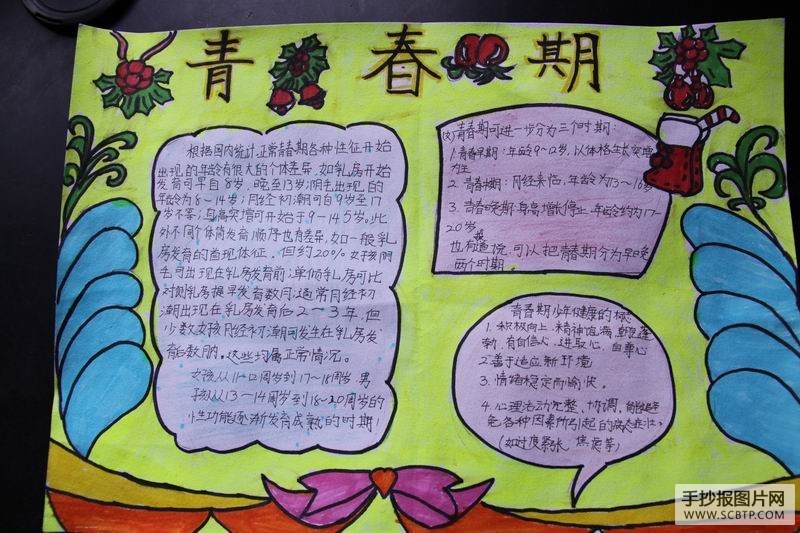 青春期
根据国内统计,正常青春期各种性征开始
出现的年龄有很大的个体差异,如乳房开始
发育可早自8岁,晚至13岁;阴毛出现的
年龄为8~14岁;月经初潮可自9岁至17
岁不等;身高突增可开始于9~14.5岁。此
外不同个体间发育顺序也有差异,如一般乳
房发育的首现体征,但约20%女孩阴
毛可出现在乳房发育前;单侧乳房可比
对侧乳房提早发育数月;通常月经初
潮出现在乳房发育后2~3年,但
少数女孩月经初潮可发生在乳房发
育数月内。这些均属正常情况。
女孩从11~12周岁到17~18周岁 男
孩从13~14周岁到18~20周岁的
性功能逐渐发育成熟的时期!
青春期可进一步分为三个时期:
1.青春早期:年龄9~12岁,以体格生长突增
为主
2.青春中期:月经来临,年龄为13~16岁
3.青春晚期:身高增长停止,年龄约为17~
20岁。
也有 可以把青春期分为早晚
两个时期
青春期少年健康的标志
1.积极向上、精神饱满、朝气蓬
勃,有自信心、进取心、自尊心
2.善于适应新环境
3.情绪稳定而愉快。
4.心理活动完整、协调,能避
免各种因素所引起的病态症状。
(如过度紧张、焦虑等)
手抄报图片网
WWW.SCBTP.COM